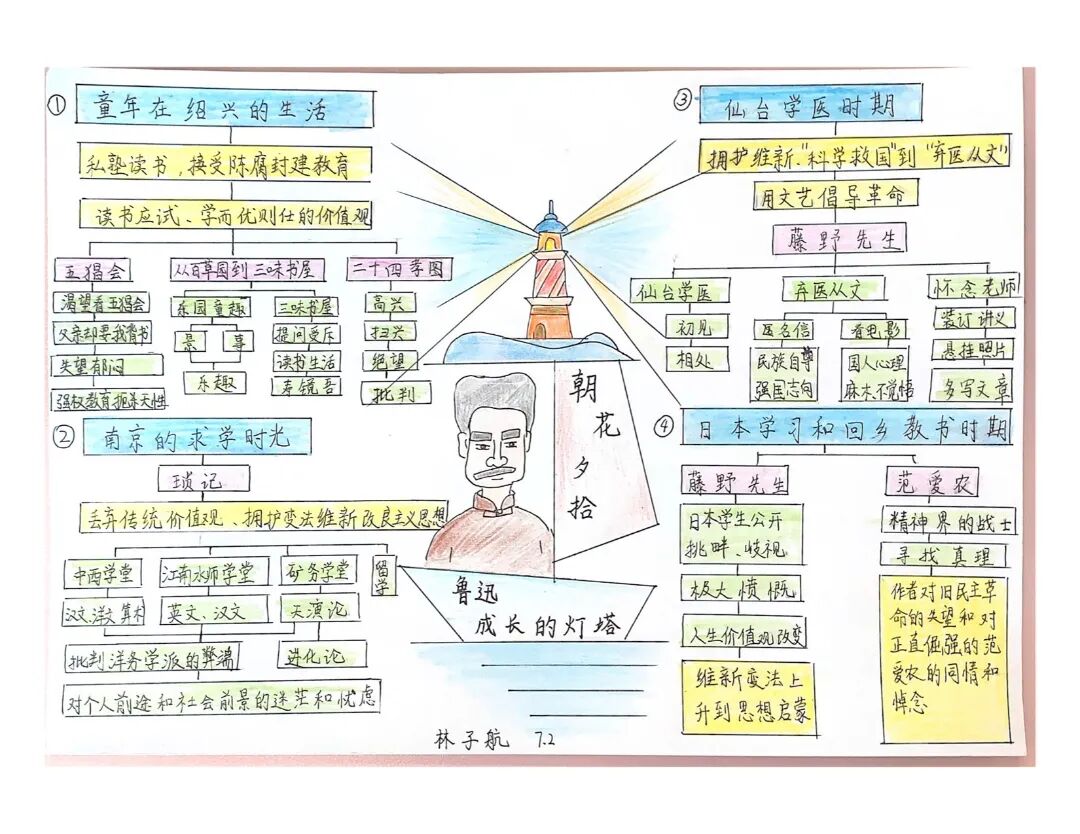 ① 童年在绍兴的生活
私塾读书，接受陈腐封建教育
读书应试、学而优则仕的价值观
五猖会
渴望看五猖会
父亲却要我背书
失望郁闷
强权教育扼杀天性
从百草园到三味书屋
乐园童趣
景
事
乐趣
三味书屋
提问受斥
读书生活
寿镜吾
二十四孝图
高兴
扫兴
绝望
批判
② 南京的求学时光
琐记
丢弃传统价值观、拥护变法维新改良主义思想
中西学堂
汉文、洋文、算术
江南水师学堂
英文、汉文
矿务学堂
天演论
进化论
留学
批判洋务学派的弊端
对个人前途和社会前景的迷茫和忧虑
③ 仙台学医时期
拥护维新."科学救国"到"弃医从文"
用文艺倡导革命
藤野先生
仙台学医
初见
相处
弃医从文
匿名信
民族自尊
强国志向
看电影
国人心理
麻木.不觉悟
怀念老师
装订讲义
悬挂照片
多写文章
④ 日本学习和回乡教书时期
藤野先生
日本学生公开
挑畔、歧视
极大愤慨
人生价值观改变
维新变法上
升到思想启蒙
范爱农
精神界的战士
寻找真理
作者对旧民主革
命的失望和对
正直倔强的范
爱农的同情和
悼念
朝花夕拾
鲁迅
成长的灯塔
林子航 7.2